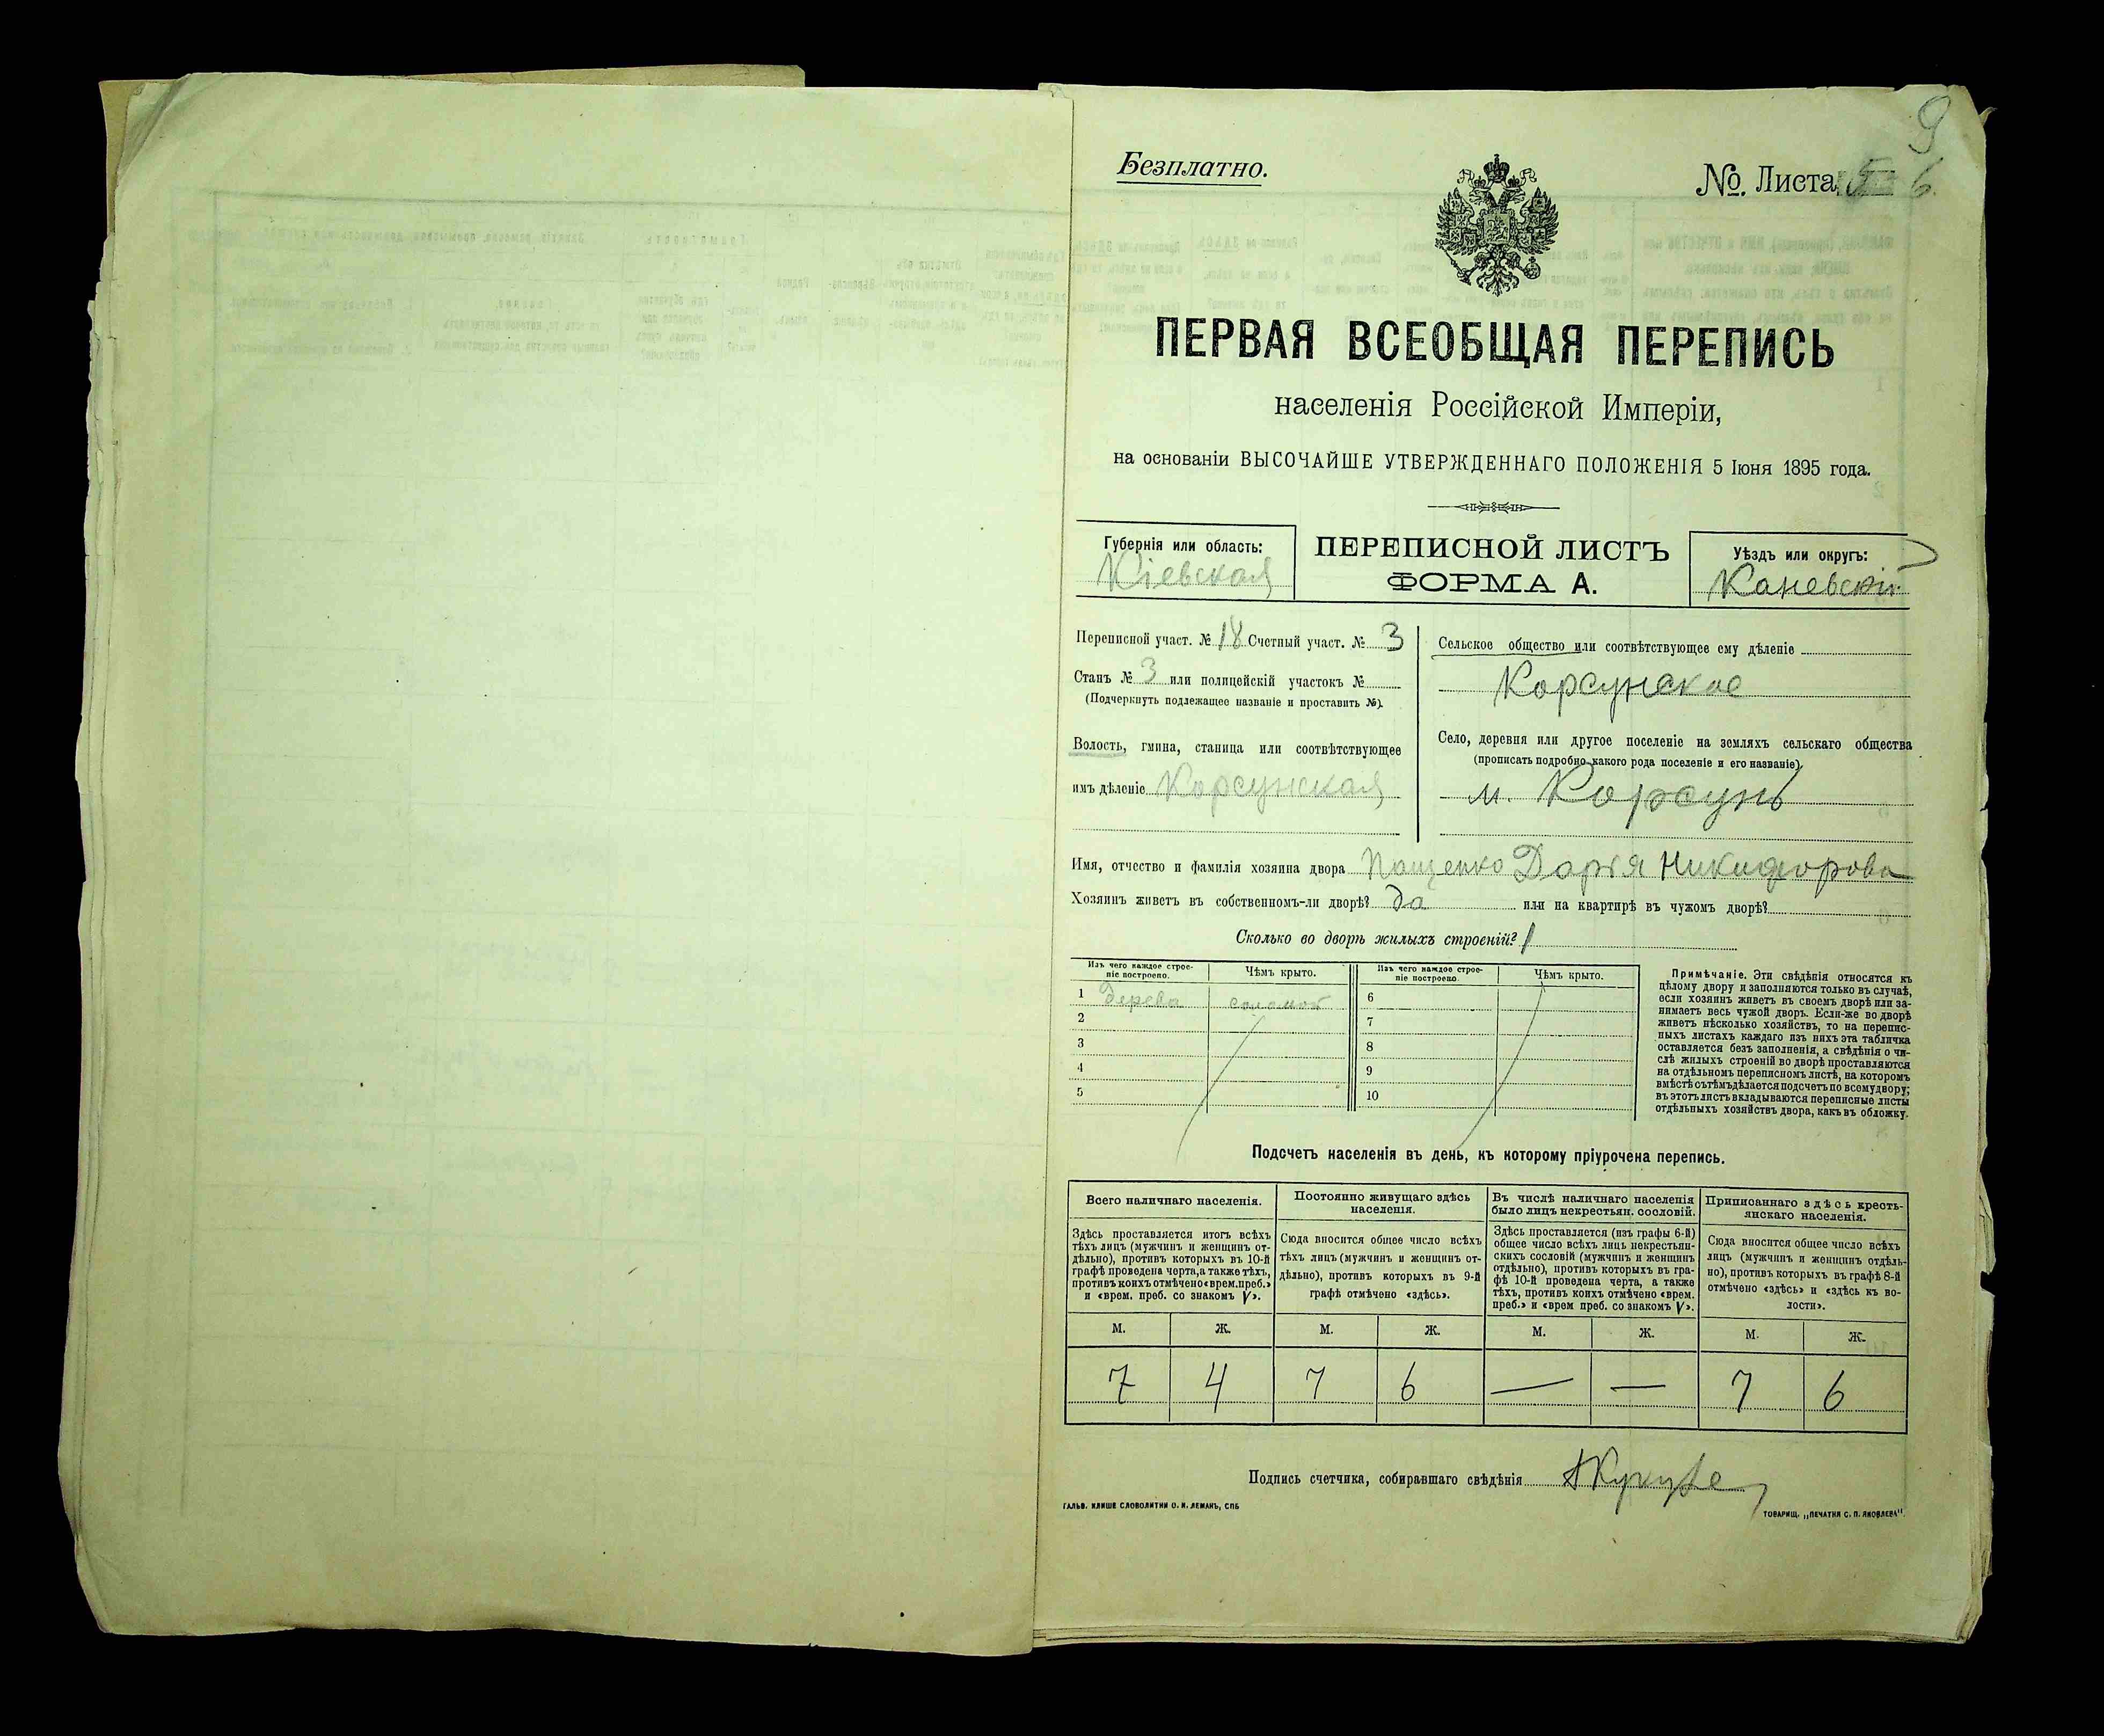 9
Безплатно.
№. Листа 6.
ПЕРВАЯ ВСЕОБЩАЯ ПЕРЕПИСЬ
населенія Россійской Имперіи,
на основаніи ВЫСОЧАЙШЕ УТВЕРЖДЕННАГО ПОЛОЖЕНІЯ 5 Іюня 1895 года.
Губернія или область:
Кіевская
ПЕРЕПИСНОЙ ЛИСТЪ
ФОРМА А.
Уѣздъ или округъ:
Каневскій
Переписной участ. № 18 Счетный участ. № 3
Станъ № 3 или полицейскій участокъ №
(Подчеркнуть подлежащее названіе и проставить №).
Волость, гмина, станица или соотвѣтствующее
имъ дѣленіе Корсунская
Сельское общество или соотвѣтствующее ему дѣленіе
Корсунское
Село, деревня или другое поселеніе на земляхъ сельскаго общества
(прописать подробно какого рода поселеніе и его названіе)
м. Корсунь
Имя, отчество и фамилія хозяина двора Пащенко Дарья Никифорова
Хозяинъ живетъ въ собственномъ-ли дворѣ? да или на квартирѣ въ чужомъ дворѣ?
Сколько во дворѣ жилыхъ строеній? 1
Изъ чего каждое строе-
ніе построено.
Чѣмъ крыто.
Изъ чего каждое строе-
ніе построено
Чѣмъ крыто.
1 дерева соломой 6
2 7
3 8
4 9
5 10
Примѣчаніе. Эти свѣдѣнія относятся къ
цѣлому двору и заполняются только въ случаѣ,
если хозяинъ живетъ въ своемъ дворѣ или за-
нимаетъ весь чужой дворъ. Если-же во дворѣ
живетъ нѣсколько хозяйствъ, то на перепис-
ныхъ листахъ каждаго изъ нихъ эта табличка
оставляется безъ заполненія, а свѣдѣнія о чи-
слѣ жилыхъ строеній во дворѣ проставляются
на отдѣльномъ переписномъ листѣ, на которомъ
вмѣстѣ съ тѣмъ дѣлается подсчетъ по всему двору;
въ этотъ листъ вкладываются переписные листы
отдѣльныхъ хозяйствъ двора, какъ въ обложку.
Подсчетъ населенія въ день, къ которому пріурочена перепись.
Всего наличнаго населенія.
Здѣсь проставляется итогъ всѣхъ
тѣхъ лицъ (мужчинъ и женщинъ от-
дѣльно), противъ которыхъ въ 10-й
графѣ проведена черта, а также тѣхъ,
противъ коихъ отмѣчено «врем. преб.»
и «врем. преб. со знакомъ V».
Постоянно живущаго здѣсь
населенія.
Сюда вносится общее число всѣхъ
тѣхъ лицъ (мужчинъ и женщинъ от-
дѣльно), противъ которыхъ въ 9-й
графѣ отмѣчено «здѣсь».
Въ числѣ наличнаго населенія
было лицъ некрестьян. сословій.
Здѣсь проставляется (изъ графы 6-й)
общее число всѣхъ лицъ некрестьян-
скихъ сословій (мужчинъ и женщинъ
отдѣльно), противъ которыхъ въ гра-
фѣ 10-й проведена черта, а также
тѣхъ, противъ коихъ отмѣчено «врем.
преб.» и «врем преб. со знакомъ V».
Приписаннаго здѣсь кресть-
янскаго населенія.
Сюда вносится общее число всѣхъ
лицъ (мужчинъ и женщинъ отдѣль-
но), противъ которыхъ въ графѣ 8-й
отмѣчено «здѣсь» и «здѣсь къ во-
лости».
М. Ж. М. Ж. М. Ж. М. Ж.
7 4 7 6 — — 7 6
Подпись счетчика, собиравшаго свѣдѣнія
ГАЛЬВ. КЛИШЕ СЛОВОЛИТНИ О. И. ЛЕМАНЪ, СПБ
ТОВАРИЩ. „ПЕЧАТНЯ С. П. ЯКОВЛЕВА".